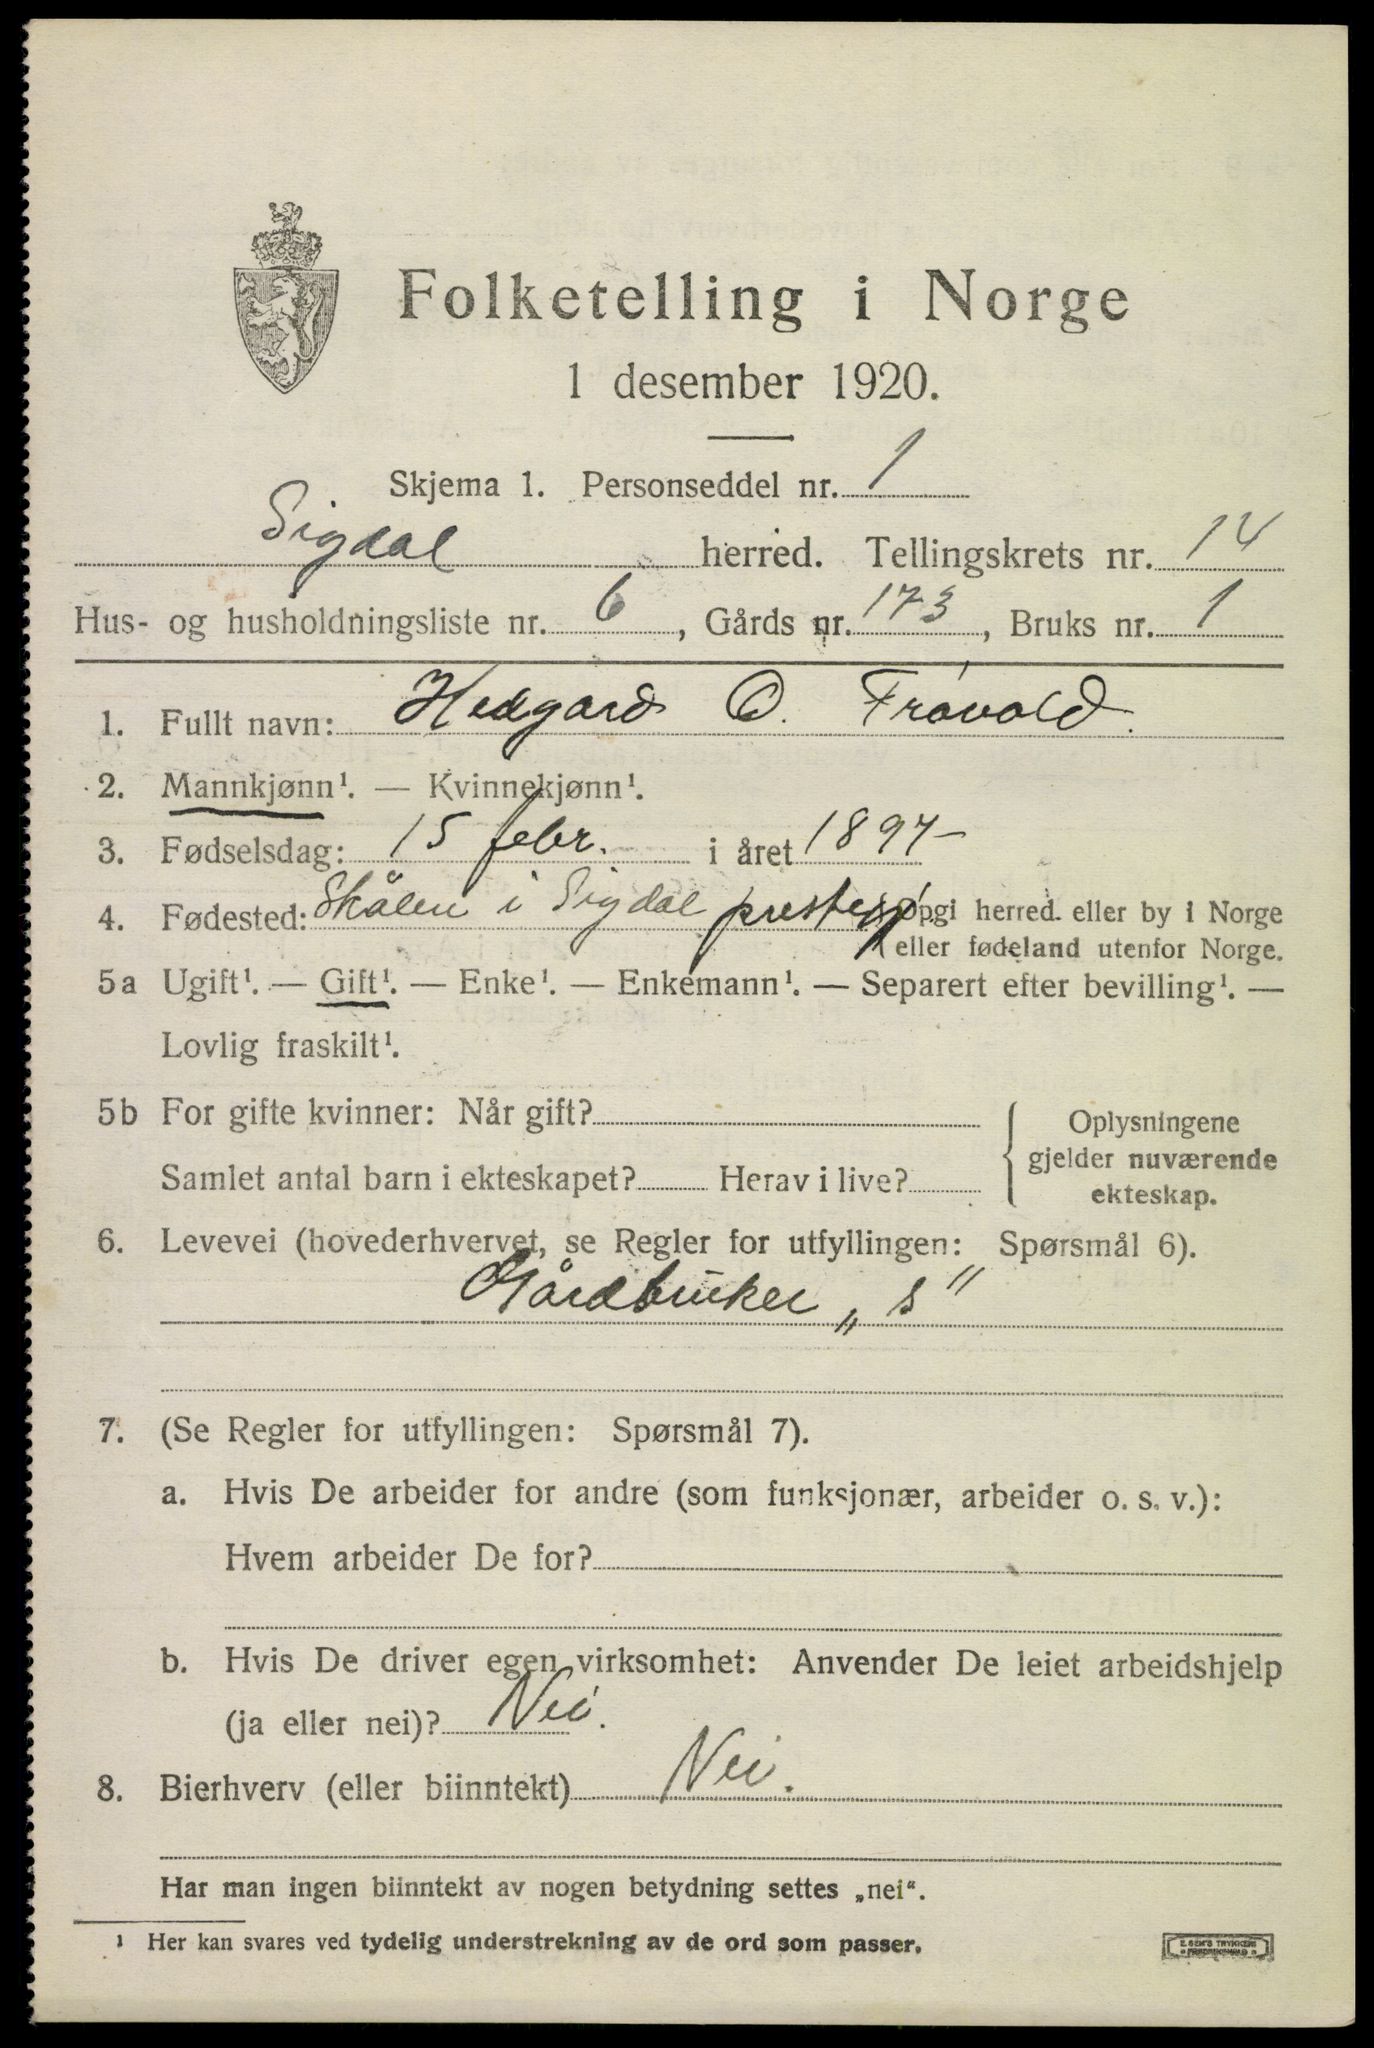 Folketelling i Norge
1 desember 1920.
Skjema 1. Personseddel nr. 1
Sigdal herred. Tellingskrets nr. 14
Hus- og husholdningsliste nr. 6, Gårds nr. 173, Bruks nr. 1
1. Fullt navn: Hedgard O. Frøvold.
2. Mannkjønn¹. — Kvinnekjønn¹.
3. Fødselsdag: 15 febr. i året 1897
4. Fødested: Skålen i Sigdal prestegj. (Opgi herred eller by i Norge
eller fødeland utenfor Norge.
5a Ugift¹. — Gift¹. — Enke¹. — Enkemann¹. — Separert efter bevilling¹. —
Lovlig fraskilt¹.
5b For gifte kvinner: Når gift?
Samlet antal barn i ekteskapet? Herav i live?
Oplysningene
gjelder nuværende
ekteskap.
6. Levevei (hovederhvervet, se Regler for utfyllingen: Spørsmål 6).
Gårdbruker „s“
7. (Se Regler for utfyllingen: Spørsmål 7).
a. Hvis De arbeider for andre (som funksjonær, arbeider o. s. v.):
Hvem arbeider De for?
b. Hvis De driver egen virksomhet: Anvender De leiet arbeidshjelp
(ja eller nei)? Nei.
8. Bierhverv (eller biinntekt) Nei.
Har man ingen biinntekt av nogen betydning settes „nei“.
¹ Her kan svares ved tydelig understrekning av de ord som passer.
E. SEM'S TRYKKERI
FREDRIKSHALD